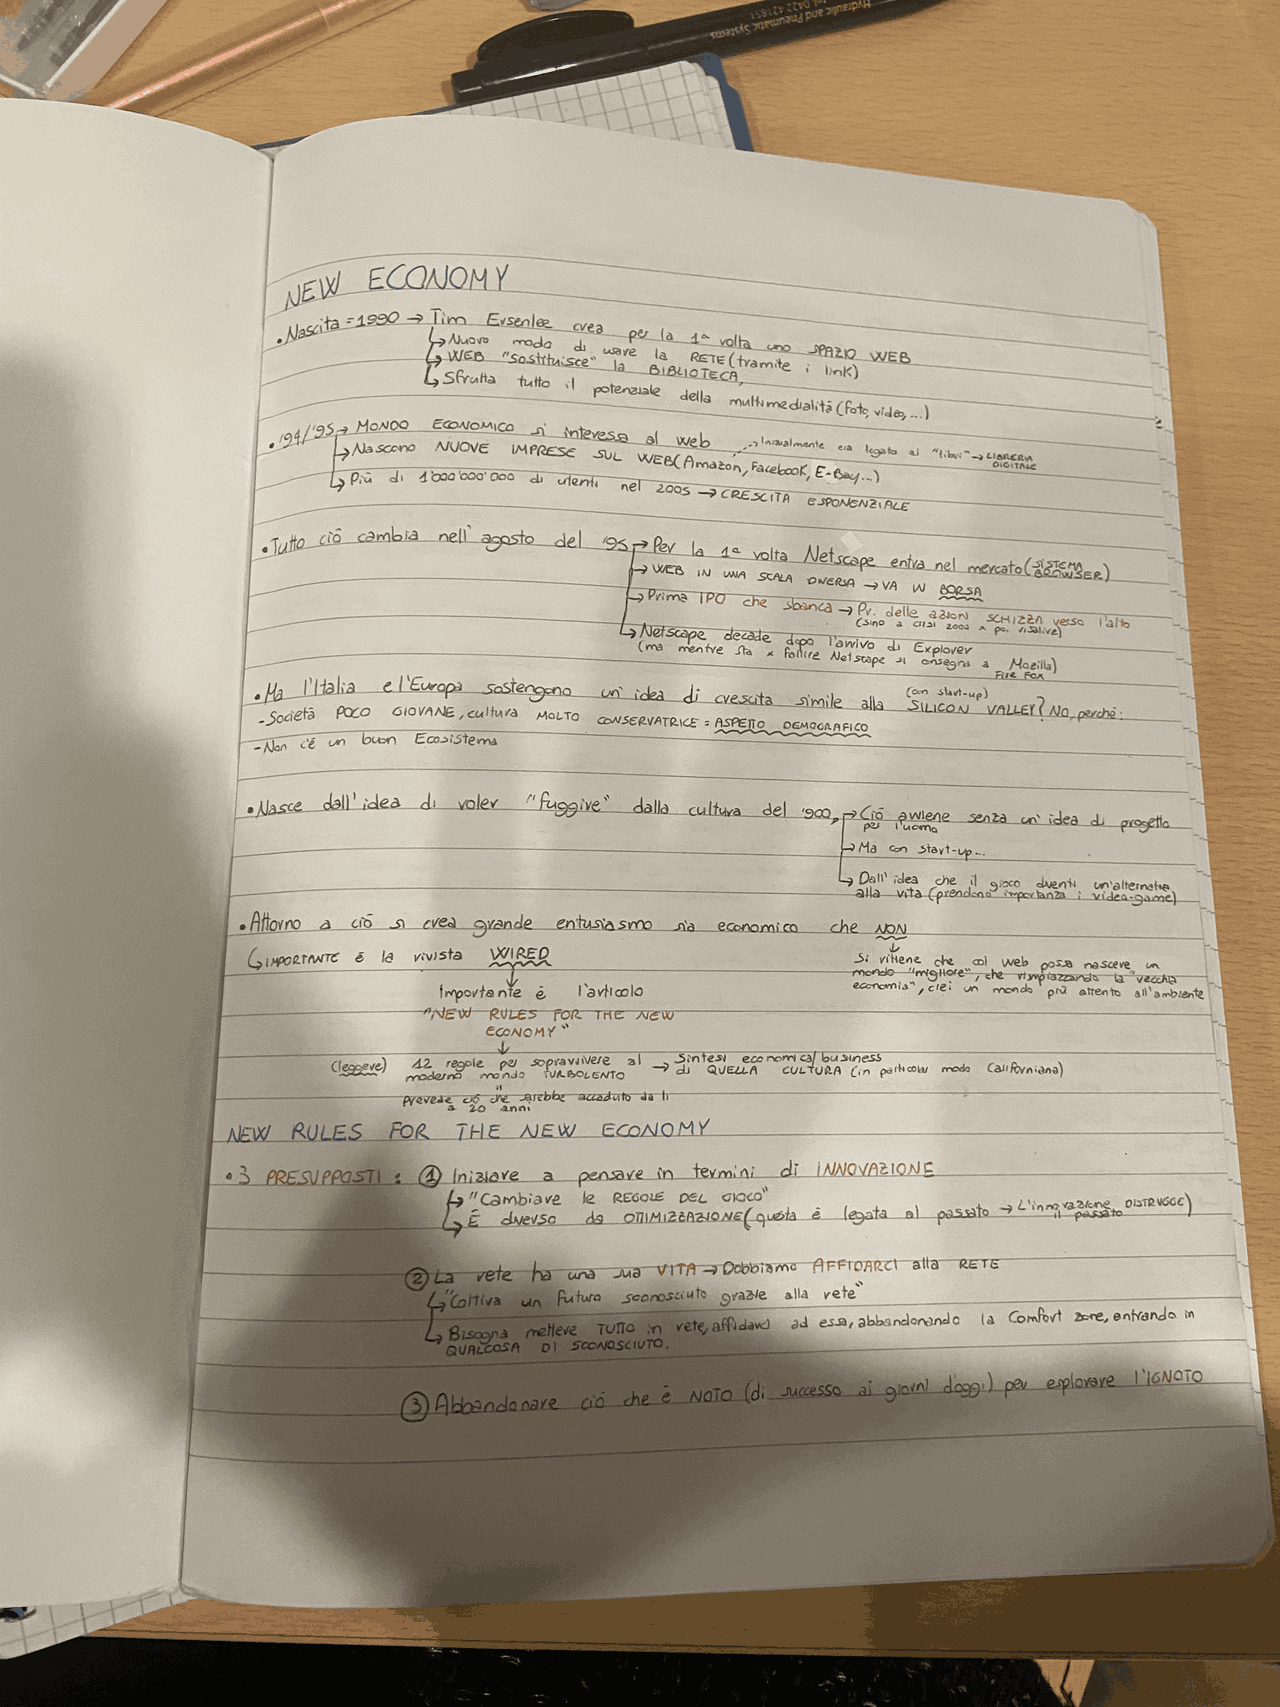 Hydraulic and Pneumatic Systems
0422 421851
NEW ECONOMY
• Nascita = 1990 → Tim Ersenlee crea per la 1ª volta uno SPAZIO WEB
↳ Nuovo modo di usare la RETE (tramite i link)
↳ WEB "sostituisce" la BIBLIOTECA,
↳ Sfrutta tutto il potenziale della multimedialità (foto, video, ...)
• '94/'95 → MONDO ECONOMICO si interessa al web
↳ Nascono NUOVE IMPRESE SUL WEB (Amazon, Facebook, E-Bay...) → Inizialmente era legato ai "libri" → LIBRERIA DIGITALE
↳ Più di 1'000'000'000 di utenti nel 2005 → CRESCITA ESPONENZIALE
• Tutto ciò cambia nell'agosto del '95 → Per la 1ª volta Netscape entra nel mercato (SISTEMA BROWSER)
→ WEB IN UNA SCALA DIVERSA → VA IN BORSA
→ Prima IPO che sbanca → Pr. delle azioni SCHIZZA verso l'alto
(sino a crisi 2000 x poi risalire)
↳ Netscape decade dopo l'arrivo di Explorer
(ma mentre sta x fallire Netscape si consegna a Mozilla)
FIRE FOX
• Ma l'Italia e l'Europa sostengono un'idea di crescita simile alla SILICON VALLEY? (con start-up) No, perchè:
- Società POCO GIOVANE, cultura MOLTO CONSERVATRICE = ASPETTO DEMOGRAFICO
- Non c'è un buon Ecosistema
• Nasce dall'idea di voler "fuggire" dalla cultura del '900, → Ciò avviene senza un'idea di progetto
per l'uomo
→ Ma con start-up...
↳ Dall'idea che il gioco diventi un'alternativa
alla vita (prendono importanza i video-game)
• Attorno a ciò si crea grande entusiasmo sia economico che NON
↓
Si ritiene che col web possa nascere un
mondo "migliore", che rimpiazzando la "vecchia
economia", crei un mondo più attento all'ambiente
↳ IMPORTANTE È la rivista WIRED
↓
Importante è l'articolo
"NEW RULES FOR THE NEW
ECONOMY"
↓
(leggere) 12 regole per sopravvivere al → Sintesi economica/business
moderno mondo TURBOLENTO di QUELLA CULTURA (in particolar modo Californiana)
prevede ciò che sarebbe accaduto da lì
a 20 anni
NEW RULES FOR THE NEW ECONOMY
• 3 PRESUPPOSTI: ① Iniziare a pensare in termini di INNOVAZIONE
↳ "Cambiare le REGOLE DEL GIOCO"
↳ È diverso da OTTIMIZZAZIONE (questa è legata al passato → L'innovazione DISTRUGGE)
il passato
② La rete ha una sua VITA → Dobbiamo AFFIDARCI alla RETE
↳ "Coltiva un futuro sconosciuto grazie alla rete"
↳ Bisogna mettere TUTTO in rete, affidarci ad essa, abbandonando la Comfort zone, entrando in
QUALCOSA DI SCONOSCIUTO.
③ Abbandonare ciò che è NOTO (di successo ai giorni d'oggi) per esplorare l'IGNOTO